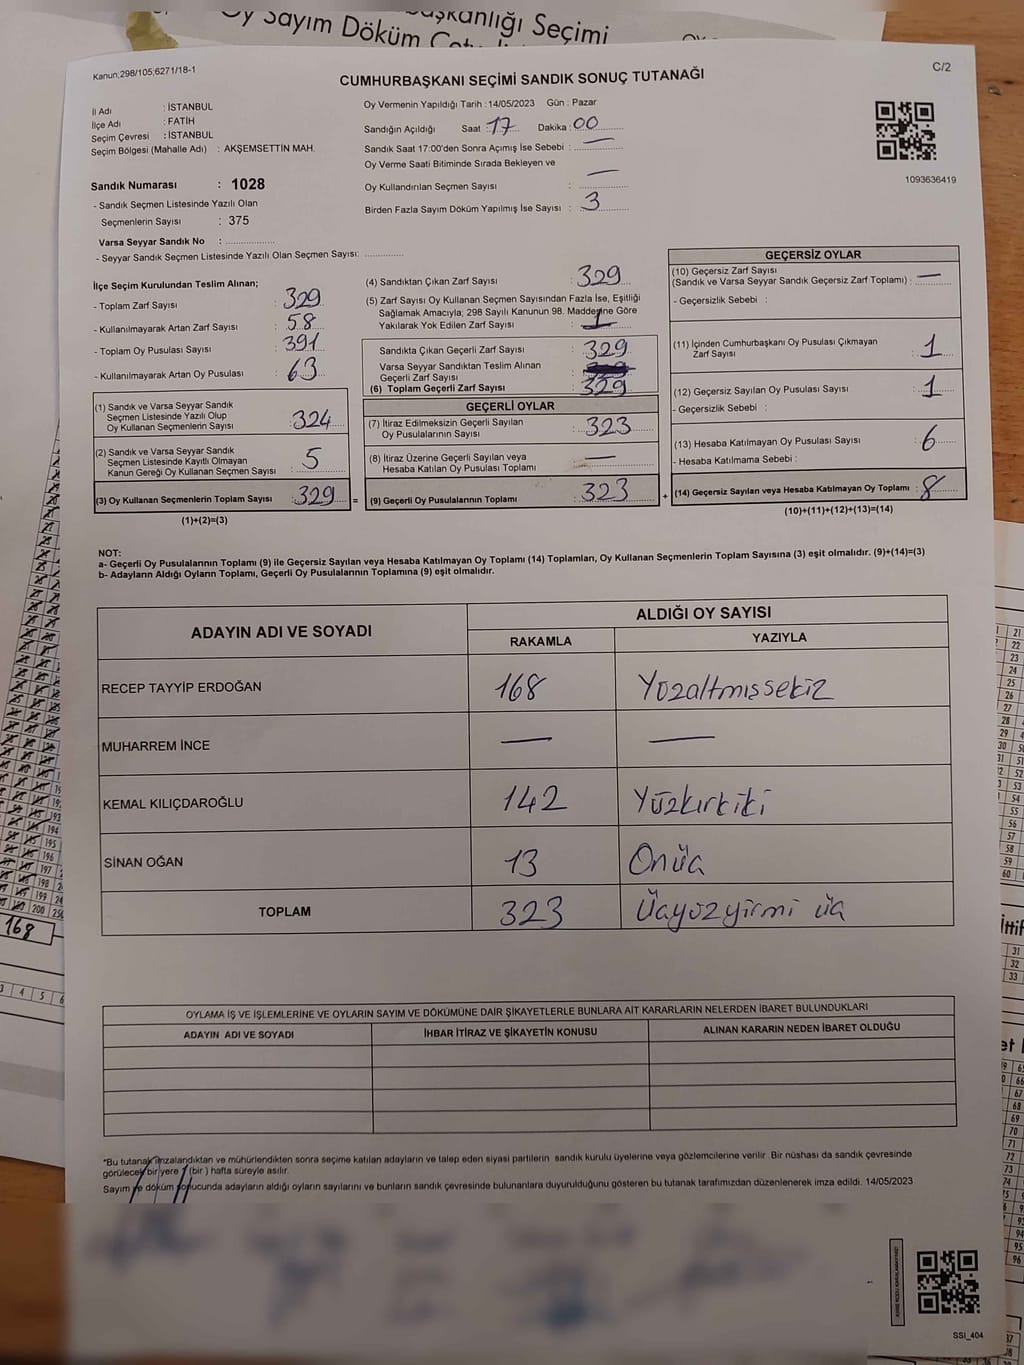 şkanlığı Seçimi
Oy Sayım Döküm
Kanun;298/105;6271/18-1
C/2
CUMHURBAŞKANI SEÇİMİ SANDIK SONUÇ TUTANAĞI
İl Adı : İSTANBUL
İlçe Adı : FATİH
Seçim Çevresi : İSTANBUL
Seçim Bölgesi (Mahalle Adı) : AKŞEMSETTİN MAH.
Sandık Numarası : 1028
- Sandık Seçmen Listesinde Yazılı Olan
Seçmenlerin Sayısı : 375
Varsa Seyyar Sandık No : ..................
- Seyyar Sandık Seçmen Listesinde Yazılı Olan Seçmen Sayısı: .............
Oy Vermenin Yapıldığı Tarih : 14/05/2023 Gün : Pazar
Sandığın Açıldığı Saat : 17 Dakika : 00
Sandık Saat 17:00'den Sonra Açımış İse Sebebi : —
Oy Verme Saati Bitiminde Sırada Bekleyen ve
Oy Kullandırılan Seçmen Sayısı : —
Birden Fazla Sayım Döküm Yapılmış İse Sayısı : 3
1093636419
İlçe Seçim Kurulundan Teslim Alınan;
- Toplam Zarf Sayısı : 329
- Kullanılmayarak Artan Zarf Sayısı : 58
- Toplam Oy Pusulası Sayısı : 391
- Kullanılmayarak Artan Oy Pusulası : 63
(1) Sandık ve Varsa Seyyar Sandık
Seçmen Listesinde Yazılı Olup
Oy Kullanan Seçmenlerin Sayısı : 324
(2) Sandık ve Varsa Seyyar Sandık
Seçmen Listesinde Kayıtlı Olmayan
Kanun Gereği Oy Kullanan Seçmen Sayısı : 5
(3) Oy Kullanan Seçmenlerin Toplam Sayısı : 329 =
(1)+(2)=(3)
(4) Sandıktan Çıkan Zarf Sayısı : 329
(5) Zarf Sayısı Oy Kullanan Seçmen Sayısından Fazla İse, Eşitliği
Sağlamak Amacıyla; 298 Sayılı Kanunun 98. Maddesine Göre
Yakılarak Yok Edilen Zarf Sayısı : 1
Sandıkta Çıkan Geçerli Zarf Sayısı : 329
Varsa Seyyar Sandıktan Teslim Alınan
Geçerli Zarf Sayısı :
(6) Toplam Geçerli Zarf Sayısı : 329
GEÇERLİ OYLAR
(7) İtiraz Edilmeksizin Geçerli Sayılan
Oy Pusulalarının Sayısı : 323
(8) İtiraz Üzerine Geçerli Sayılan veya
Hesaba Katılan Oy Pusulası Toplamı : —
(9) Geçerli Oy Pusulalarının Toplamı : 323 +
GEÇERSİZ OYLAR
(10) Geçersiz Zarf Sayısı
(Sandık ve Varsa Seyyar Sandık Geçersiz Zarf Toplamı) : —
- Geçersizlik Sebebi :
(11) İçinden Cumhurbaşkanı Oy Pusulası Çıkmayan
Zarf Sayısı : 1
(12) Geçersiz Sayılan Oy Pusulası Sayısı : 1
- Geçersizlik Sebebi :
(13) Hesaba Katılmayan Oy Pusulası Sayısı : 6
- Hesaba Katılmama Sebebi :
(14) Geçersiz Sayılan veya Hesaba Katılmayan Oy Toplamı : 8
(10)+(11)+(12)+(13)=(14)
NOT:
a- Geçerli Oy Pusulalarının Toplamı (9) ile Geçersiz Sayılan veya Hesaba Katılmayan Oy Toplamı (14) Toplamları, Oy Kullanan Seçmenlerin Toplam Sayısına (3) eşit olmalıdır. (9)+(14)=(3)
b- Adayların Aldığı Oyların Toplamı, Geçerli Oy Pusulalarının Toplamına (9) eşit olmalıdır.
ADAYIN ADI VE SOYADI
ALDIĞI OY SAYISI
RAKAMLA YAZIYLA
RECEP TAYYİP ERDOĞAN 168 Yüzaltmışsekiz
MUHARREM İNCE — —
KEMAL KILIÇDAROĞLU 142 Yüzkırkiki
SİNAN OĞAN 13 Onüç
TOPLAM 323 Üçyüzyirmi üç
OYLAMA İŞ VE İŞLEMLERİNE VE OYLARIN SAYIM VE DÖKÜMÜNE DAİR ŞİKAYETLERLE BUNLARA AİT KARARLARIN NELERDEN İBARET BULUNDUKLARI
ADAYIN ADI VE SOYADI İHBAR İTİRAZ VE ŞİKAYETİN KONUSU ALINAN KARARIN NEDEN İBARET OLDUĞU
*Bu tutanak imzalandıktan ve mühürlendikten sonra seçime katılan adayların ve talep eden siyasi partilerin sandık kurulu üyelerine veya gözlemcilerine verilir. Bir nüshası da sandık çevresinde
görülecek bir yere 1 (bir ) hafta süreyle asılır.
Sayım ve döküm sonucunda adayların aldığı oyların sayılarını ve bunların sandık çevresinde bulunanlara duyurulduğunu gösteren bu tutanak tarafımızdan düzenlenerek imza edildi. 14/05/2023
SSİ_404
168